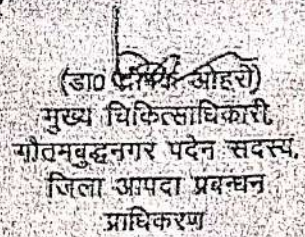 (डा0 दीपक ओहरी)
मुख्य चिकित्साधिकारी
गौतमबुद्धनगर पदेन सदस्य,
जिला आपदा प्रबन्धन
प्राधिकरण